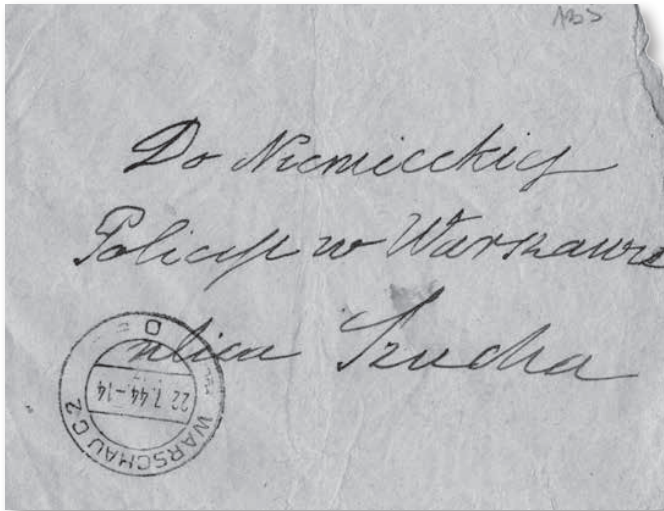 Do Niemieckiej
Policji w Warszawie
ulica Szucha
WARSCHAU C2
22.7.44-14